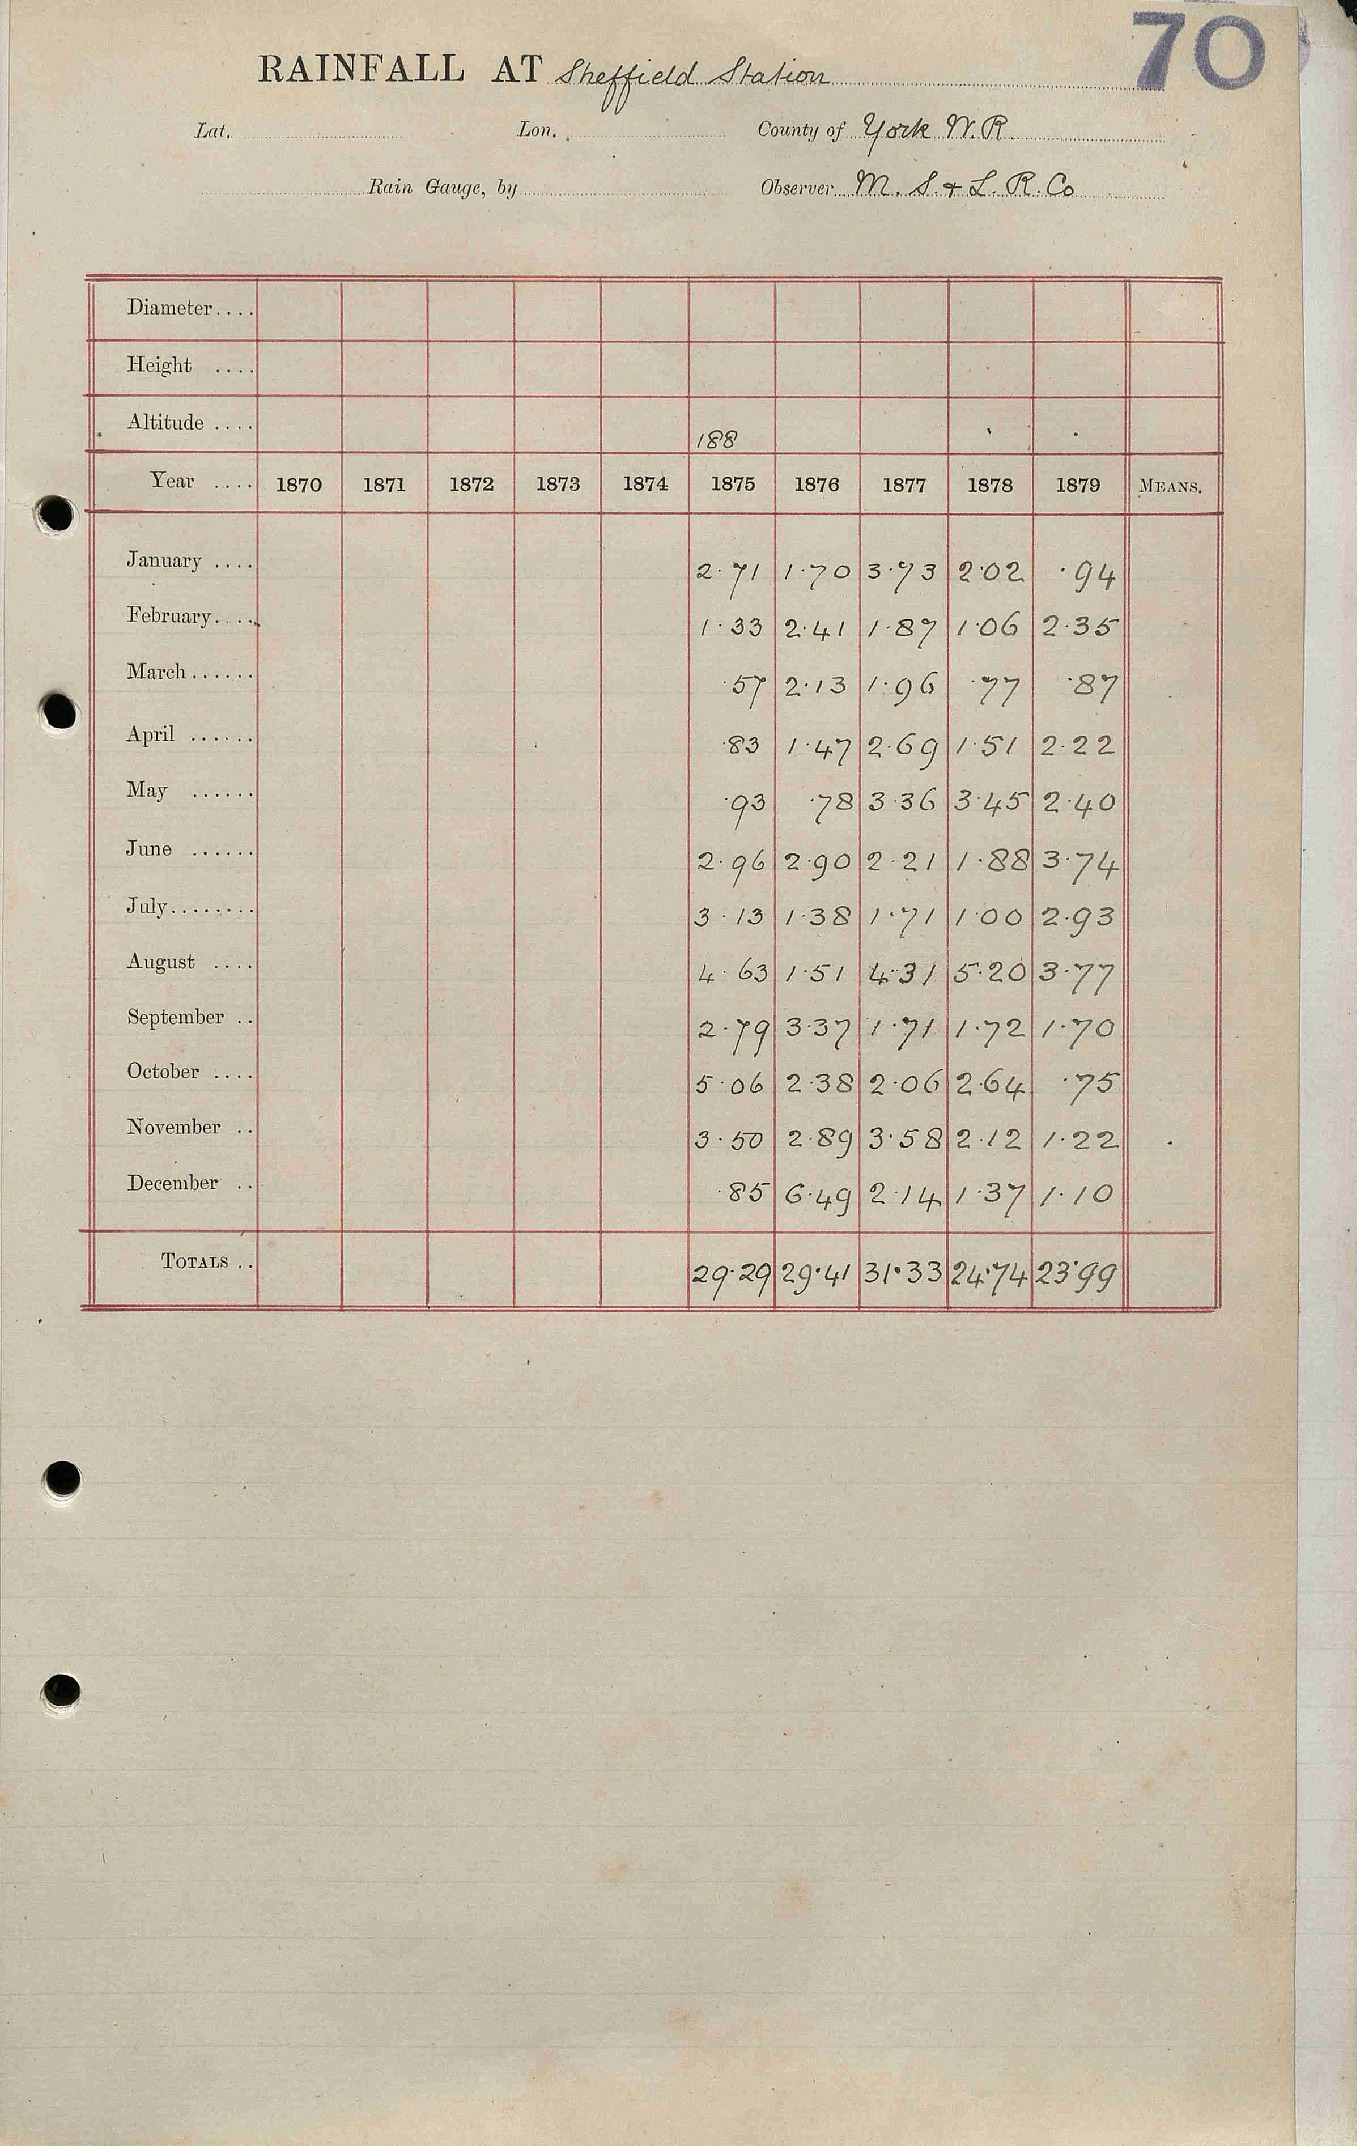 70
RAINFALL AT Sheffield Station
Lat. Lon. County of York W. R.
Rain Gauge, by Observer M. S. & L. R. Co
Diameter....
Height ....
Altitude .... 188
Year .... 1870 1871 1872 1873 1874 1875 1876 1877 1878 1879 MEANS.
January .... 2.71 1.70 3.73 2.02 .94
February.... 1.33 2.41 1.87 1.06 2.35
March...... .57 2.13 1.96 .77 .87
April ...... .83 1.47 2.69 1.51 2.22
May ...... .93 .78 3.36 3.45 2.40
June ...... 2.96 2.90 2.21 1.88 3.74
July........ 3.13 1.38 1.71 1.00 2.93
August .... 4.63 1.51 4.31 5.20 3.77
September .. 2.79 3.37 1.71 1.72 1.70
October .... 5.06 2.38 2.06 2.64 .75
November .. 3.50 2.89 3.58 2.12 1.22
December .. .85 6.49 2.14 1.37 1.10
TOTALS .. 29.29 29.41 31.33 24.74 23.99